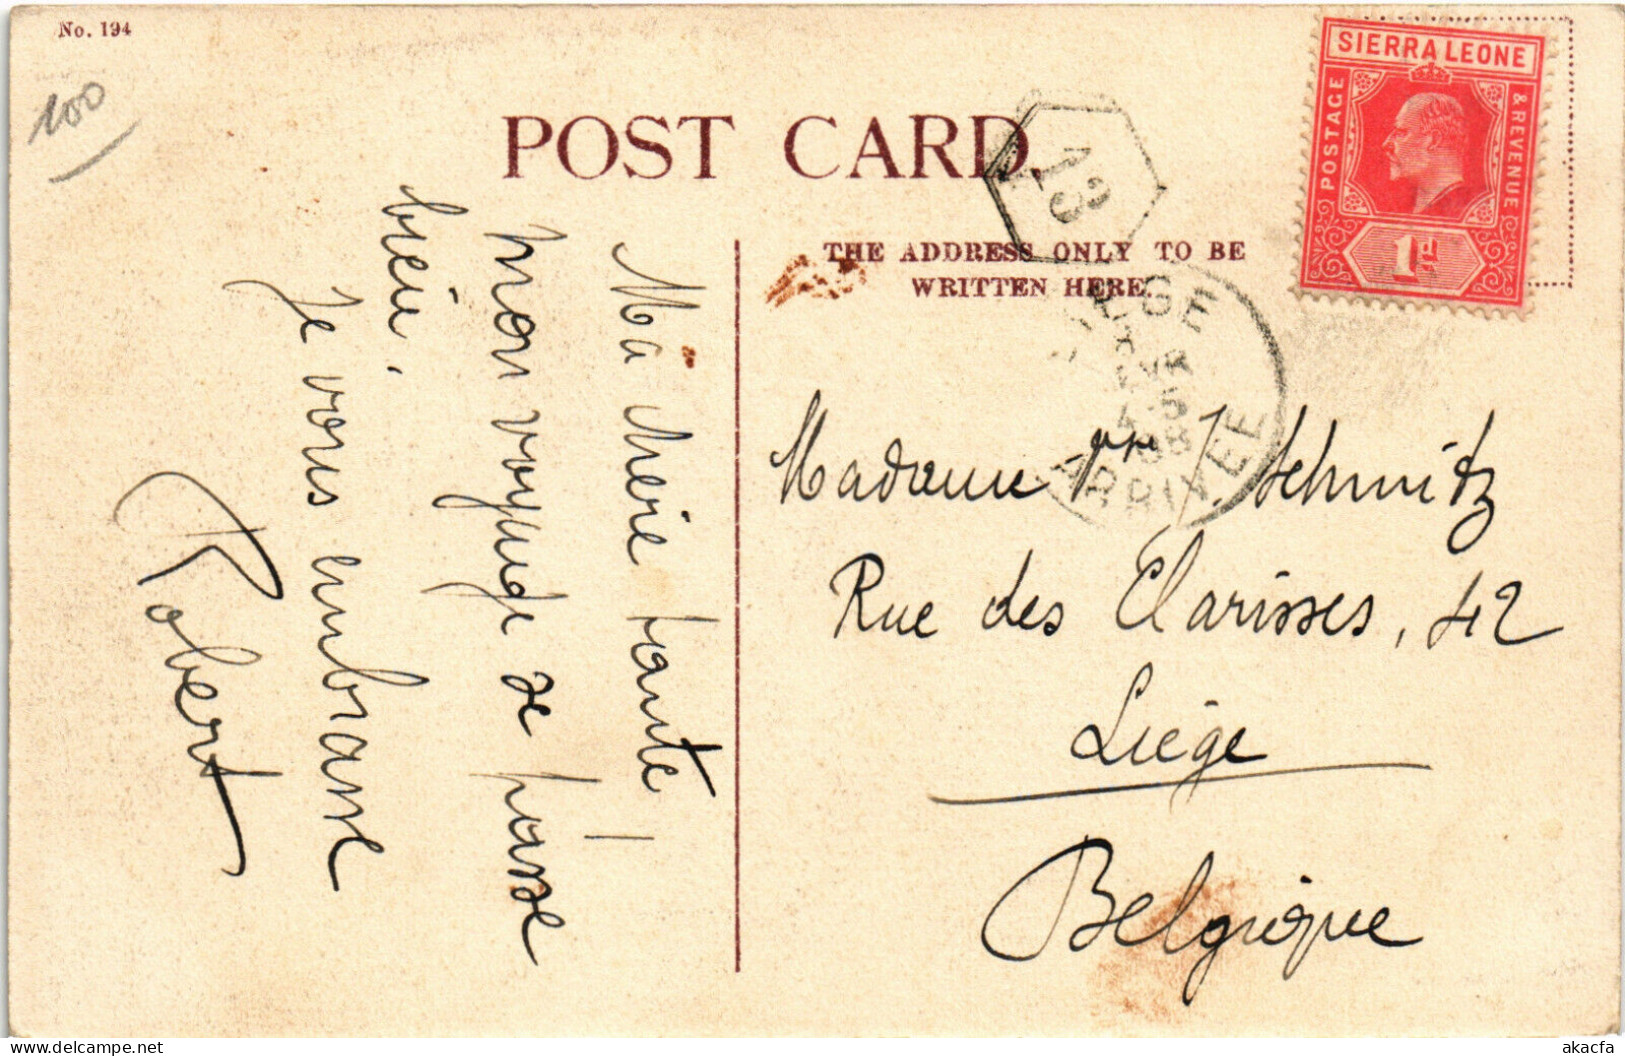 No. 194
100
POST CARD
13
SIERRA LEONE
POSTAGE
& REVENUE
1d
THE ADDRESS ONLY TO BE
WRITTEN HERE.
LIEGE
ARRIVEE
Ma chérie tante!
mon voyage se passe
bien.
Je vous embrasse
Robert
Madame Vve J. Schmitz
Rue des Clarisses, 42
Liège
Belgique
akacfa